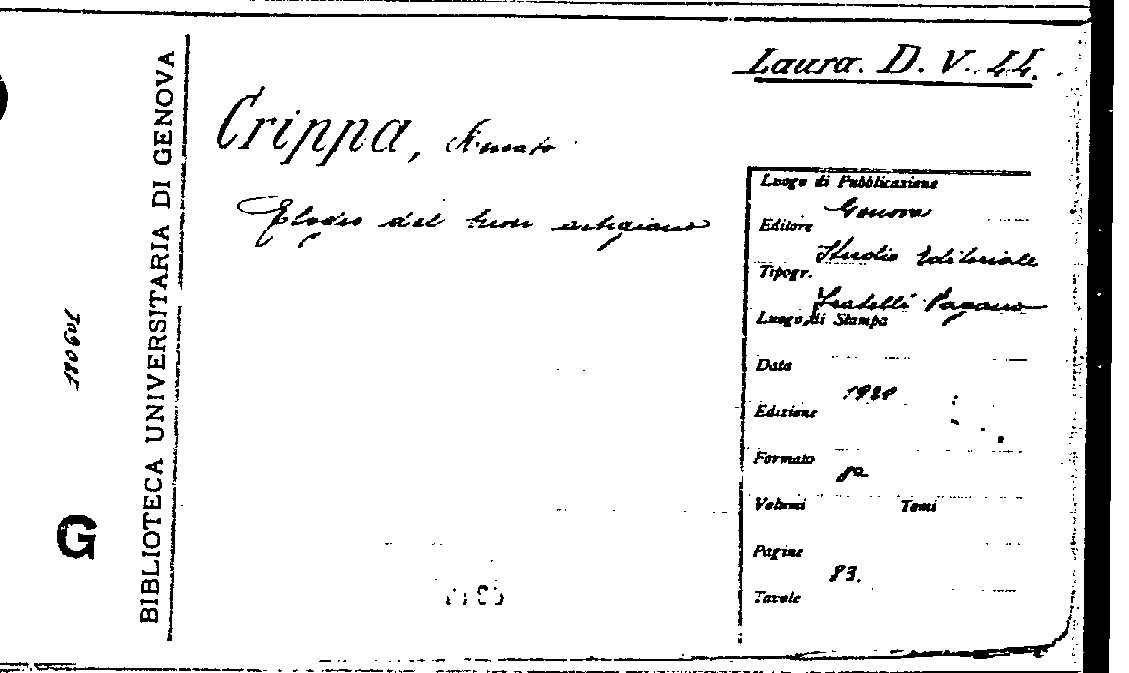 Laura. D. V. 44.
Crippa,
Elogio del buon artigiano
Luogo di Pubblicazione
Genova
Editore
Studio Editoriale
Tipogr.
Fratelli Pagano
Luogo di Stampa
Data
Edizione
Formato
8º
Volumi Tomi
Pagine
83.
Tavole
BIBLIOTECA UNIVERSITARIA DI GENOVA
G